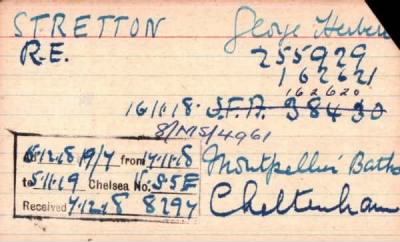 STRETTON George Herbert
R.E. 255929
162621
162620
16/1/18 J.F.A. 38430
8/MS/4961
6/12/18 19/7 from 7/11/18
to 5/11/19 Chelsea No. 55E
Received 7/12/18 8297
Montpellier Baths
Cheltenham